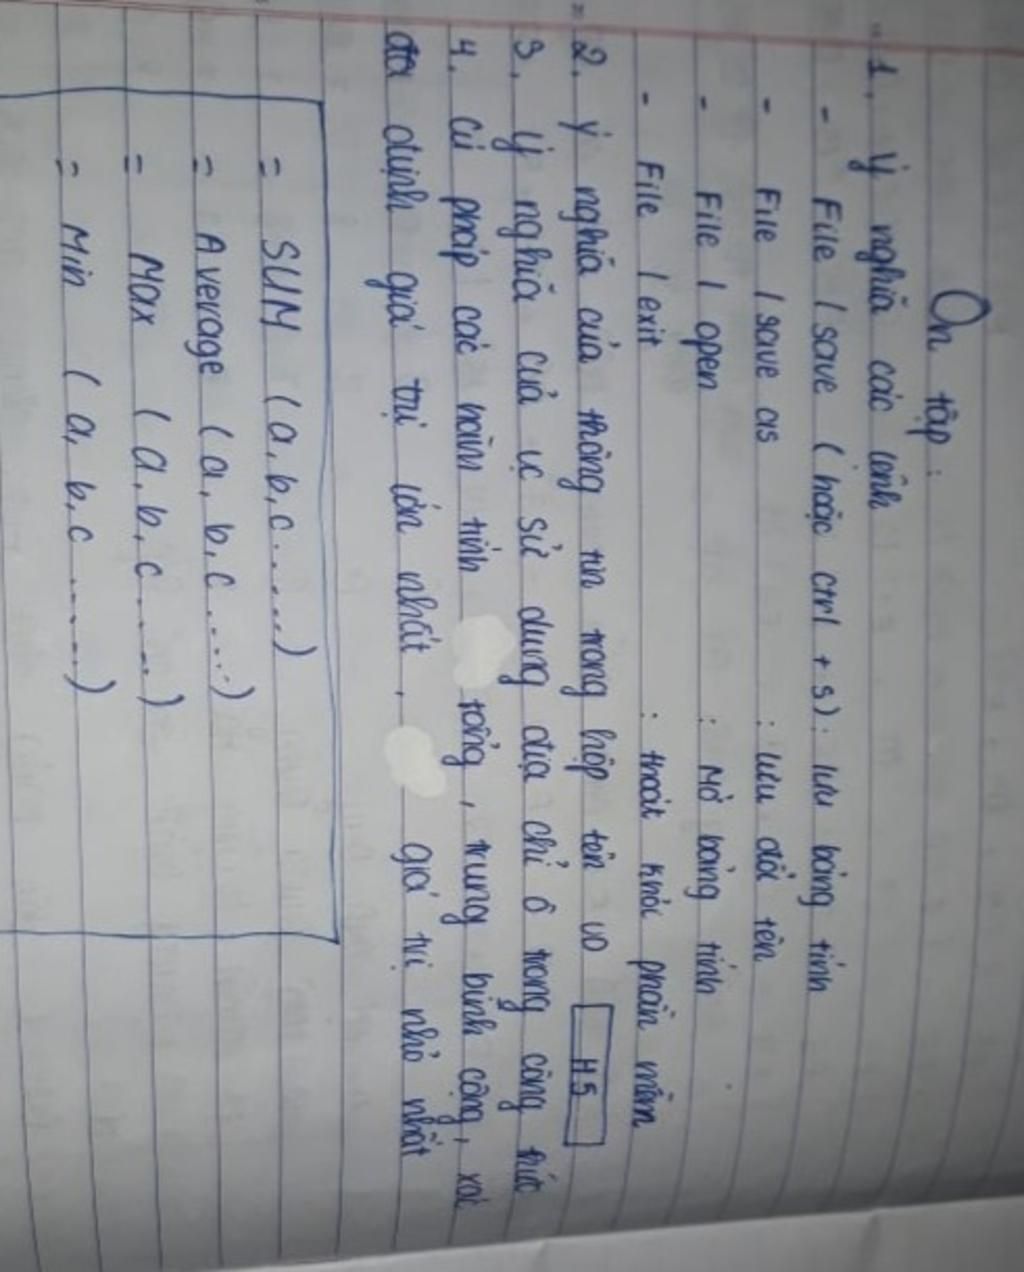 Ôn tập:
1, Ý nghĩa các lệnh
- File / save ( hoặc ctrl + s): lưu bảng tính
- File / save as : lưu đổi tên
- File / open : Mở bảng tính
- File / exit : thoát khỏi phần mềm
2, Ý nghĩa của thông tin trong hộp tên VD H5
3, Ý nghĩa của việc sử dụng địa chỉ ô trong công thức
4, Cú pháp các hàm tính tổng, trung bình cộng, xác
định giá trị lớn nhất, giá trị nhỏ nhất
= SUM (a, b, c.....)
= Average (a, b, c....)
= Max (a, b, c.....)
= Min (a, b, c.....)